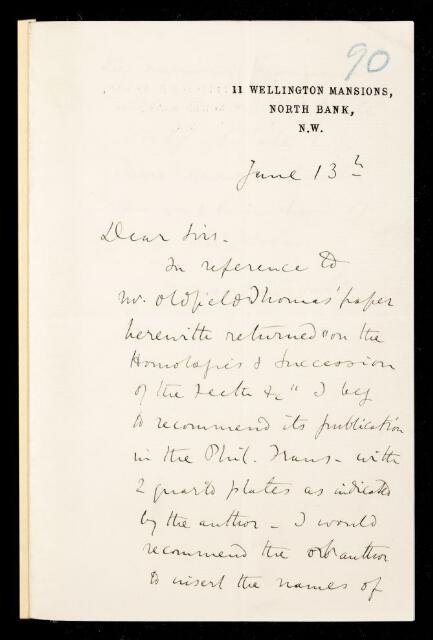 90
11 WELLINGTON MANSIONS,
NORTH BANK,
N.W.
June 13th
Dear Sirs -
In reference to
Mr. Oldfield Thomas' paper
herewith returned "on the
Homologies & Succession
of the Teeth &c" I beg
to recommend its publication
in the Phil. Trans - with
2 quarto plates as indicated
by the author - I would
recommend the author
to insert the names of